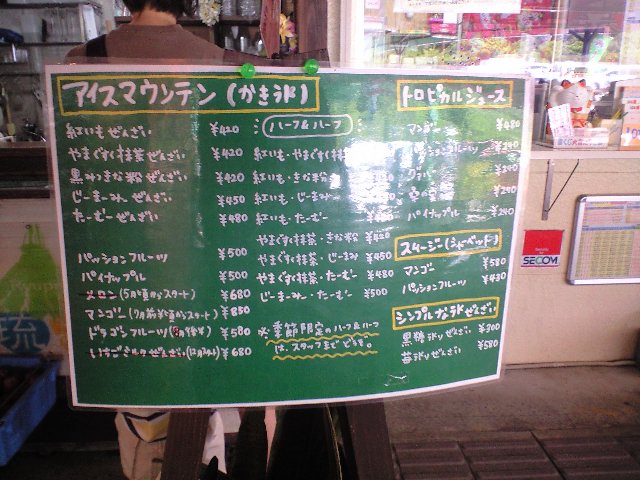 アイスマウンテン(かき氷)
紅いもぜんざい ¥420
やまぐすく抹茶ぜんざい ¥420
黒みつきな粉ぜんざい ¥420
じーまーみぃぜんざい ¥450
たーむーぜんざい ¥480
パッションフルーツ ¥500
パイナップル ¥500
メロン(5月頃からスタート) ¥680
マンゴー(7月前半頃からスタート) ¥850
ドラゴンフルーツ(8月後半) ¥580
¥680
ハーフ&ハーフ
紅いも・やまぐすく抹茶
紅いも・きな粉
紅いも・じーまーみぃ
紅いも・たーむー
やまぐすく抹茶・きな粉 ¥420
やまぐすく抹茶・じーまーみ ¥450
やまぐすく抹茶・たーむー ¥480
じーまーみぃ・たーむー ¥500
※季節限定のハーフ&ハーフ
は、スタッフまでどうぞ。
トロピカルジュース
マンゴー ¥480
パッションフルーツ ¥240
¥240
¥240
パイナップル ¥240
スムージー(シャーベット)
マンゴー ¥580
パッションフルーツ ¥430
シンプルな氷ぜんざい
黒糖氷りぜんざい ¥300
苺氷りぜんざい ¥580
SECOM
琉